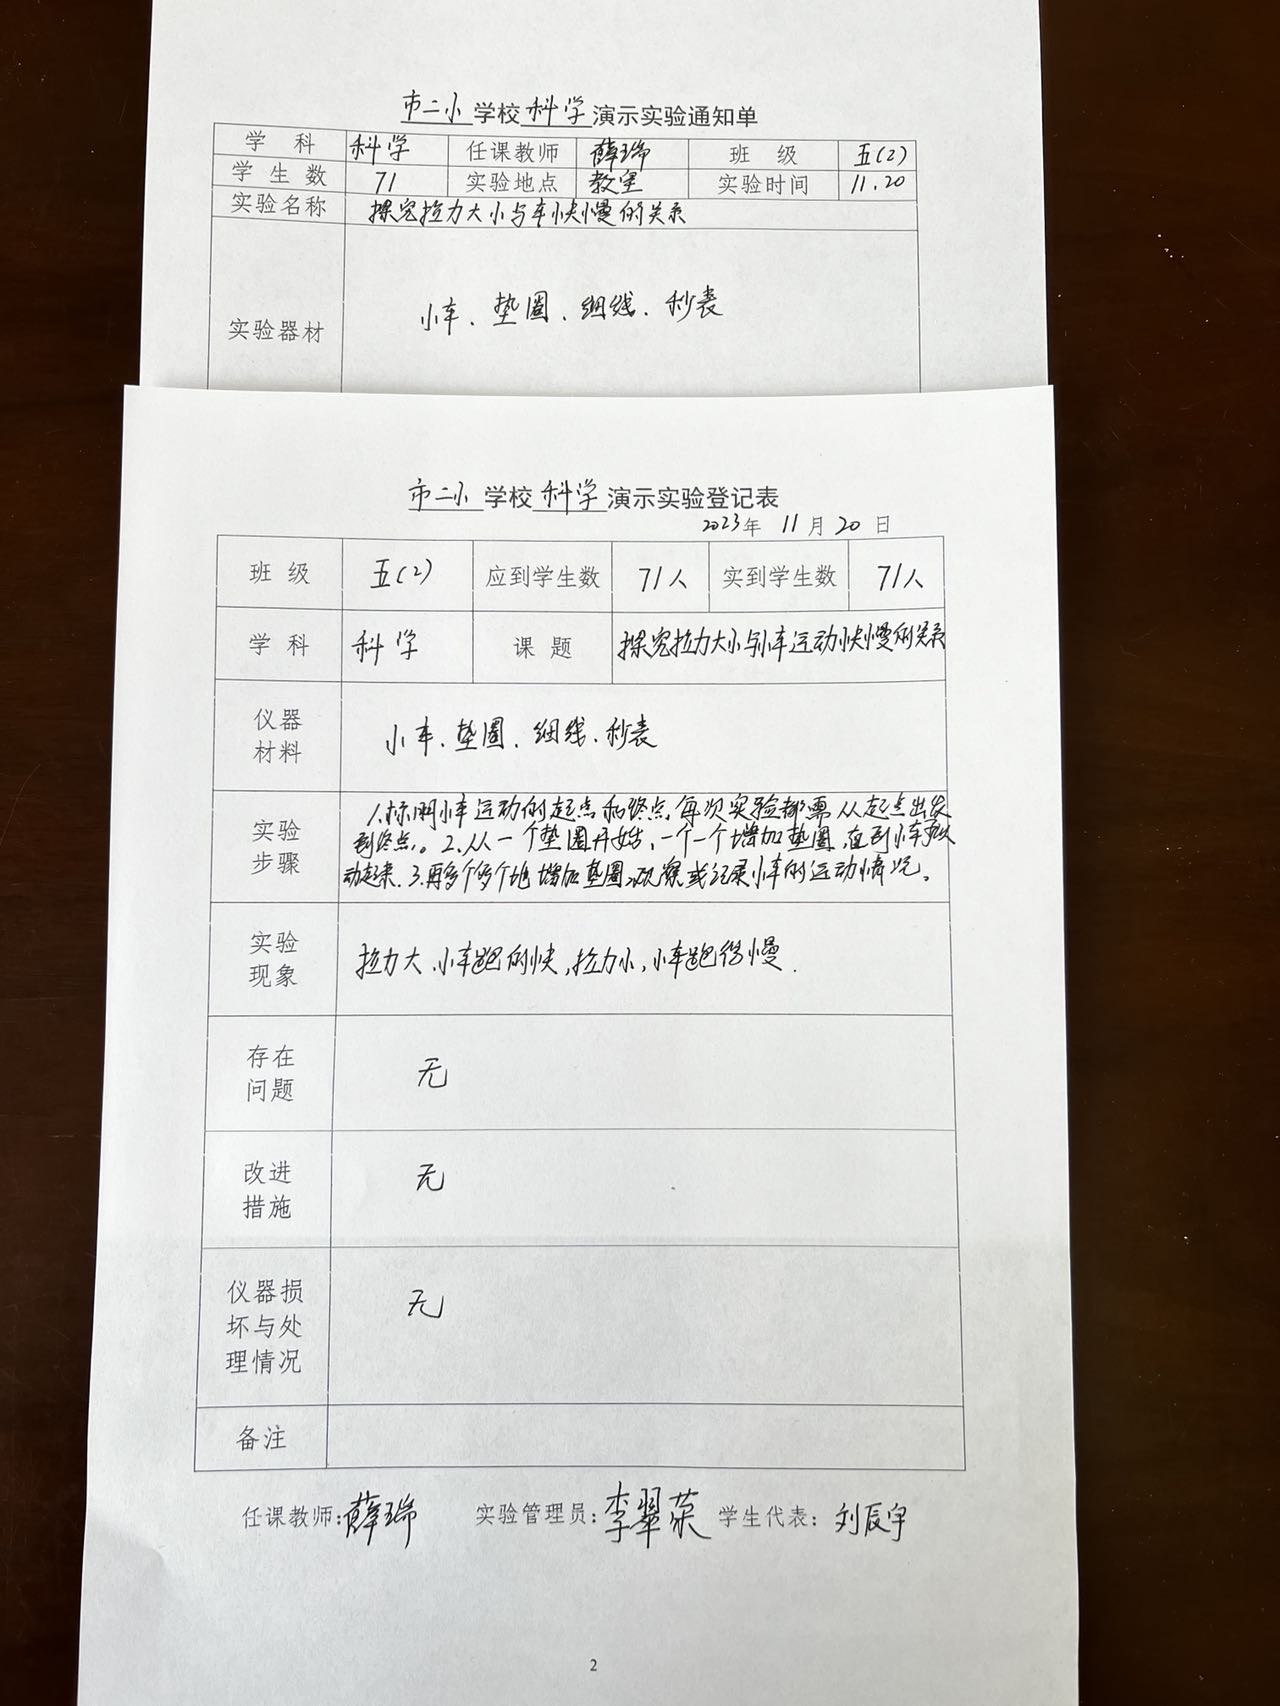 市二小学校科学演示实验通知单
学 科 科学 任课教师 薛瑞 班 级 五(2)
学 生 数 71 实验地点 教室 实验时间 11.20
实验名称 探究拉力大小与车快慢的关系
实验器材 小车、垫圈、细线、秒表
市二小学校科学演示实验登记表
2023年 11月20日
班 级 五(2) 应到学生数 71人 实到学生数 71人
学 科 科学 课 题 探究拉力大小与小车运动快慢的关系
仪器
材料
小车、垫圈、细线、秒表
实验
步骤
1.标明小车运动的起点和终点,每次实验都需从起点出发
到终点。2.从一个垫圈开始,一个一个增加垫圈,直到小车
动起来.3.再多个多个地增加垫圈,观察或记录小车的运动情况。
实验
现象
拉力大,小车跑的快,拉力小,小车跑得慢.
存在
问题
无
改进
措施
无
仪器损
坏与处
理情况
无
备注
任课教师:薛瑞 实验管理员:李翠荣 学生代表:刘辰宇
2